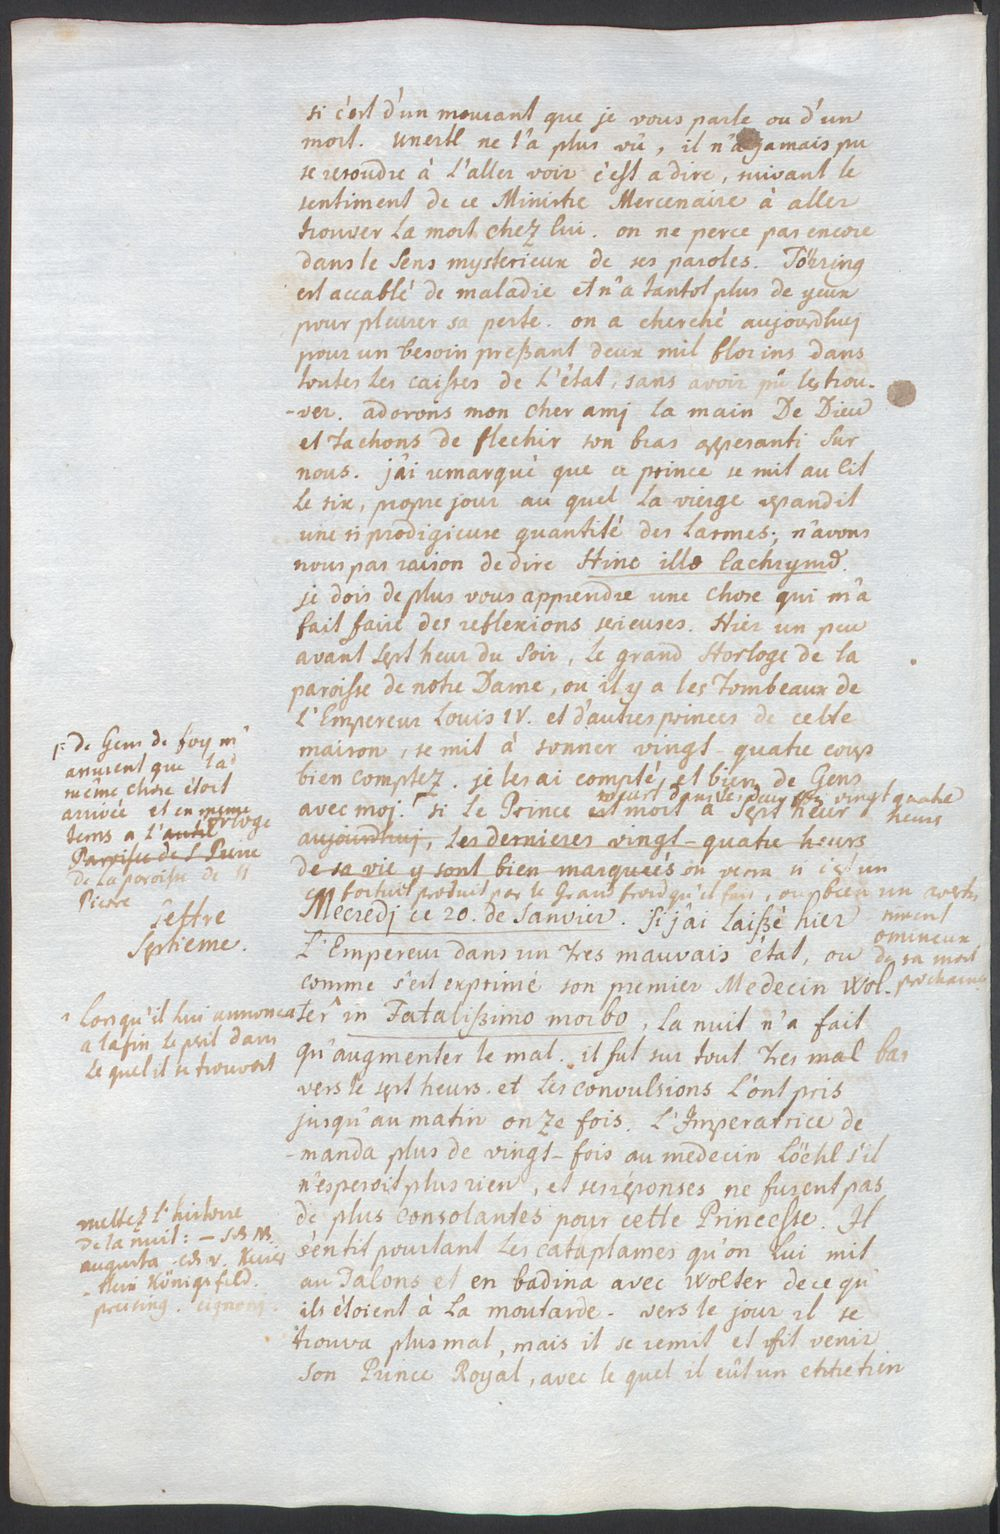 si c'est d'un mourant que je vous parle ou d'un
mort. Unertl ne l'a plus vû, il n'a jamais pu
se resoudre à l'aller voir c'est a dire, suivant le
sentiment de ce Ministre Mercenaire à aller
trouver la mort chez lui. on ne perce pas encore
dans le sens mysterieux de ses paroles. Törring
est accablé de maladie et n'a tantot plus de yeux
pour pleurer sa perte. on a cherché aujourdhuj
pour un besoin preßant deux mil florins dans
toutes les caisses de l'état, sans avoir pû les trou-
-ver. adorons mon cher amj la main De Dieu
et tachons de flechir son bras appesanti sur
nous. j'ai remarqué que ce prince se mit au lit
le six, propre jour au quel la vierge repandit
une si prodigieuse quantité des larmes; n'avons
nous pas raison de dire Hinc illæ lachrymæ.
je dois de plus vous apprendre une chose qui m'a
fait faire des reflexions serieuses. Hier un peu
avant sept heur du soir, le grand Horloge de la
paroisse de notre Dame, ou il y a les Tombeaux de
l'Empereur Louis IV. et d'autres princes de cette
maison, se mit à sonner vingt-quatre coup
bien comptez. je les ai compté, et bien de Gens
avec moj. si le Prince est mort à sept heur
meurt dans les vingt quatre
heurs
aujourdhuj, les dernieres vingt-quatre heurs
de sa vie y sont bien marqueés on verra si c'est un
fortuit produit par le grand froid qu'il fais, ou bien un avertis
siment
omineux
de sa mort
prochaine
de Gens de foy m'
assurent que la
même chose étoit
arrivée et en meme
tems a l'horloge
Paroisse de S Pierre
de la paroisse de St
Pierre
Lettre
Septieme.
Mecredj ce 20. de Janvier. Si j'ai laißé hier
L'Empereur dans un tres mauvais état, ou
comme s'est exprimé son premier Medecin Wol-
ter in Fatalißimo morbo, la nuit n'a fait
lorsqu'il lui annonca
a la fin le peril dans
le quel il se trouvoit
qu'augmenter le mal. il fut sur tout tres mal bas
vers le sept heurs. et les convulsions l'ont pris
jusqu'au matin onze fois. L'Imperatrice de
-manda plus de vingt-fois au medecin Löehl s'il
n'esperoit plus rien, et ses reponses ne furent pas
de plus consolantes pour cette Princesse. Il
sentit pourtant les cataplames qu'on lui mit
au Talons et en badina avec Wolter de ce qu'
ils étoient à la moutarde. vers le jour il se
trouva plus mal, mais il se remit et fit venir
son Prince Royal, avec le quel il eût un entretien
mettez l'histoire
de la nuit: —
augusta
Königsfeld.
preising.